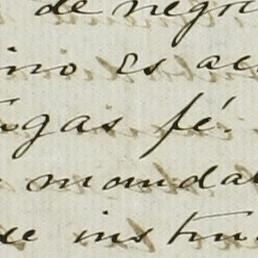 de negri
ino es ac
igas fé.
manda
de instru